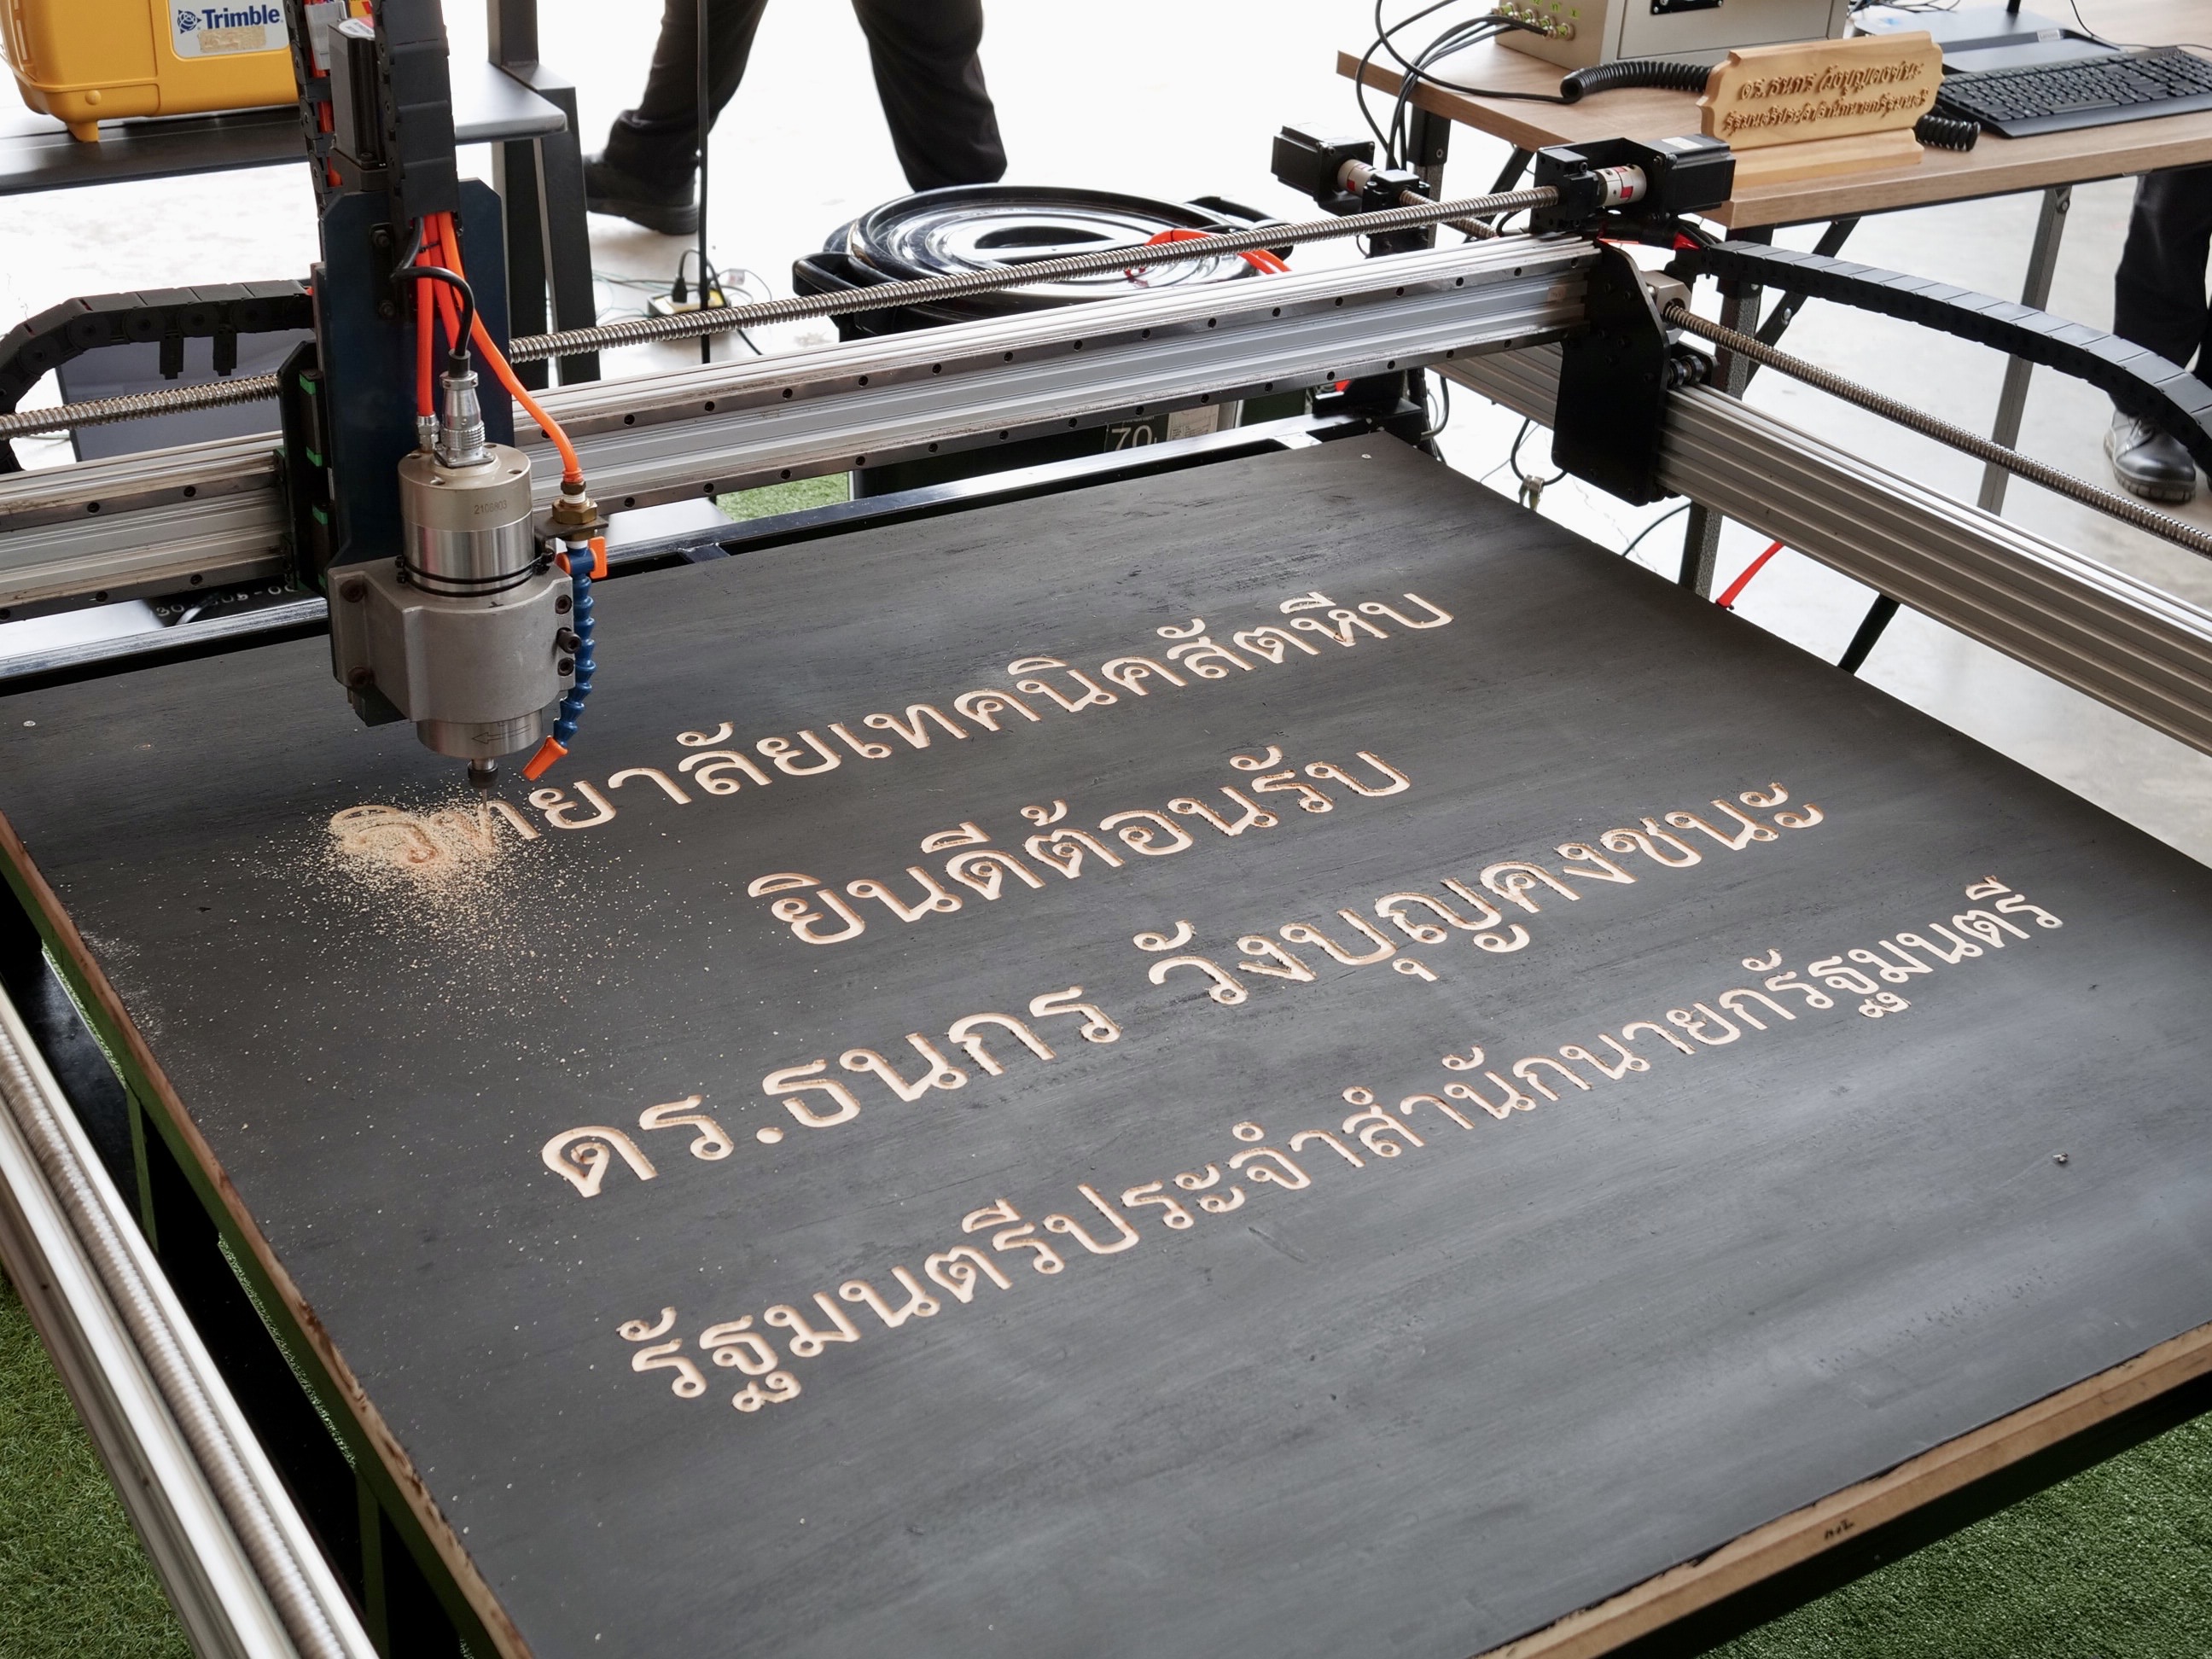 Trimble
ดร.ธนกร วังบุญคงชนะ
รัฐมนตรีประจำสำนักนายกรัฐมนตรี
70
2108803
วิทยาลัยเทคนิคสัตหีบ
ยินดีต้อนรับ
ดร.ธนกร วังบุญคงชนะ
รัฐมนตรีประจำสำนักนายกรัฐมนตรี